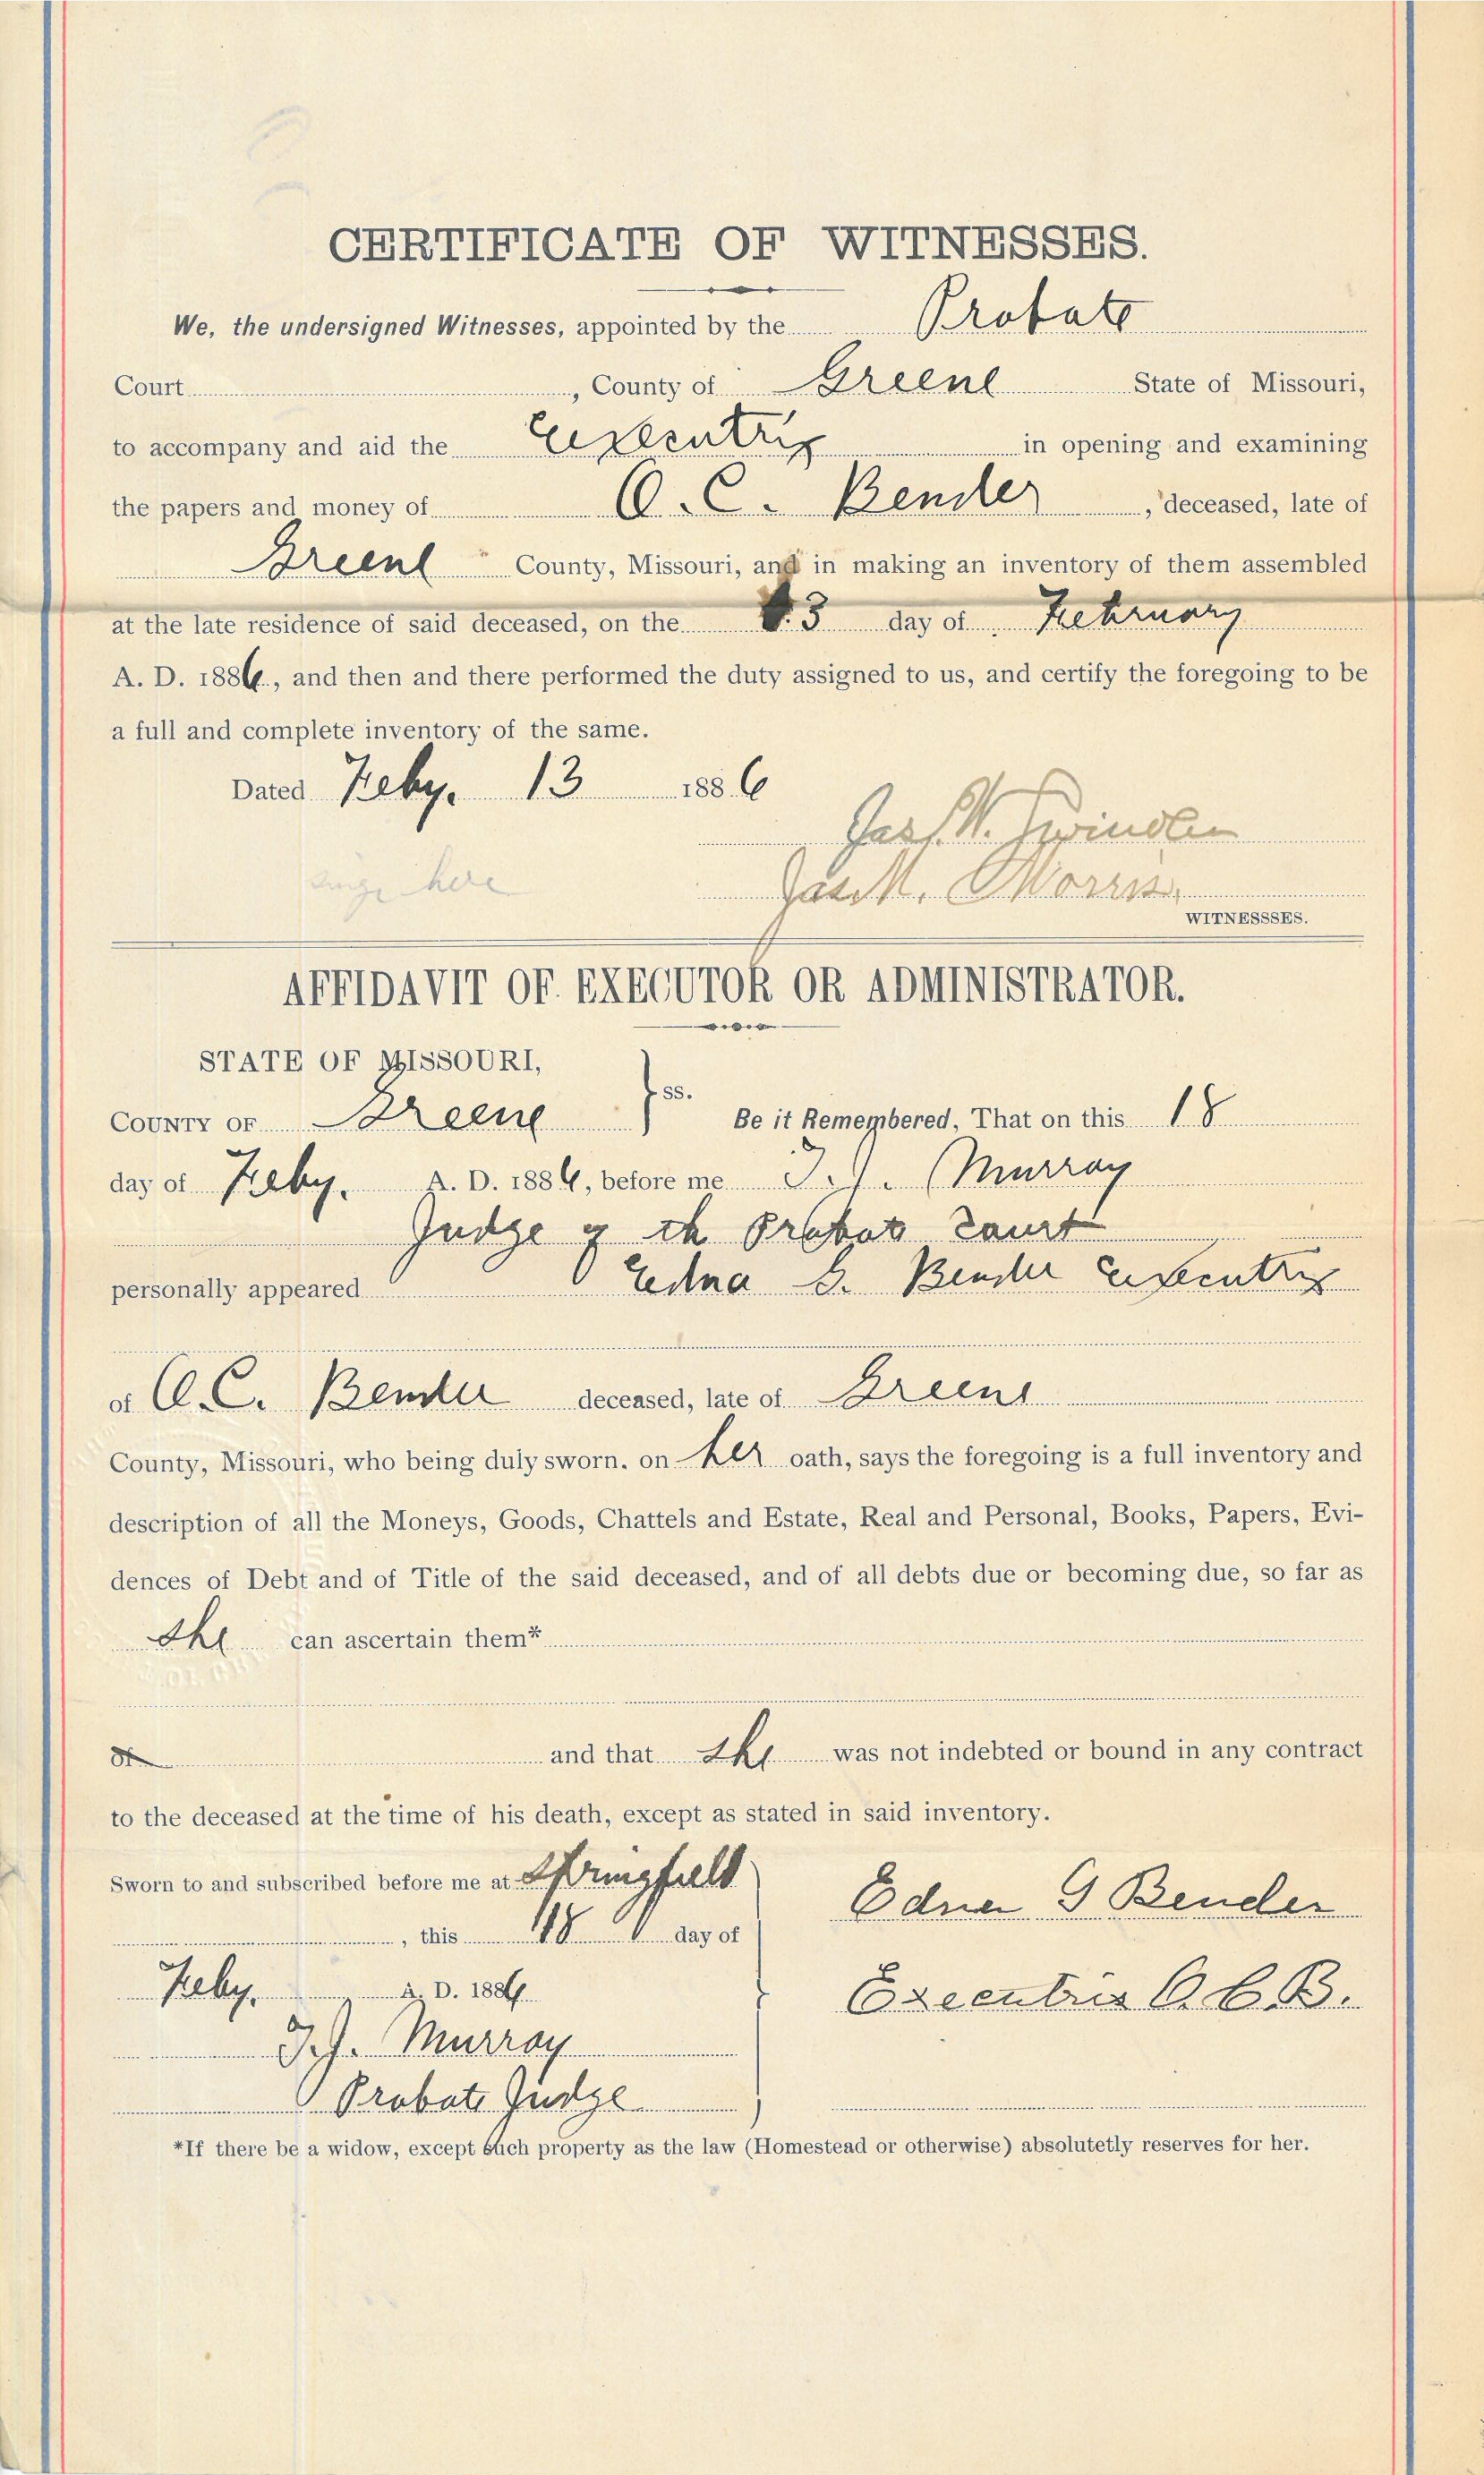 CERTIFICATE OF WITNESSES.
We, the undersigned Witnesses, appointed by the Probate
Court , County of Greene State of Missouri,
to accompany and aid the Executrix in opening and examining
the papers and money of O. C. Bender , deceased, late of
Greene County, Missouri, and in making an inventory of them assembled
at the late residence of said deceased, on the 3 day of February
A. D. 1886, and then and there performed the duty assigned to us, and certify the foregoing to be
a full and complete inventory of the same.
Dated Feby. 13 1886
Jas. W.
here
Jas. M. Morris.
WITNESSSES.
AFFIDAVIT OF EXECUTOR OR ADMINISTRATOR.
STATE OF MISSOURI,
COUNTY OF Greene } ss. Be it Remembered, That on this 18
day of Feby. A. D. 1886, before me T. J. Murray
Judge of th Probate Court
personally appeared Edna G. Bender Executrix
of O. C. Bender deceased, late of Greene
County, Missouri, who being duly sworn. on her oath, says the foregoing is a full inventory and
description of all the Moneys, Goods, Chattels and Estate, Real and Personal, Books, Papers, Evi-
dences of Debt and of Title of the said deceased, and of all debts due or becoming due, so far as
she can ascertain them*
of and that she was not indebted or bound in any contract
to the deceased at the time of his death, except as stated in said inventory.
Sworn to and subscribed before me at Springfield
, this 18 day of
Feby. A. D. 1886
T. J. Murray
Probate Judge
Edna G Bender
Executrix O. C. B.
*If there be a widow, except such property as the law (Homestead or otherwise) absolutetly reserves for her.